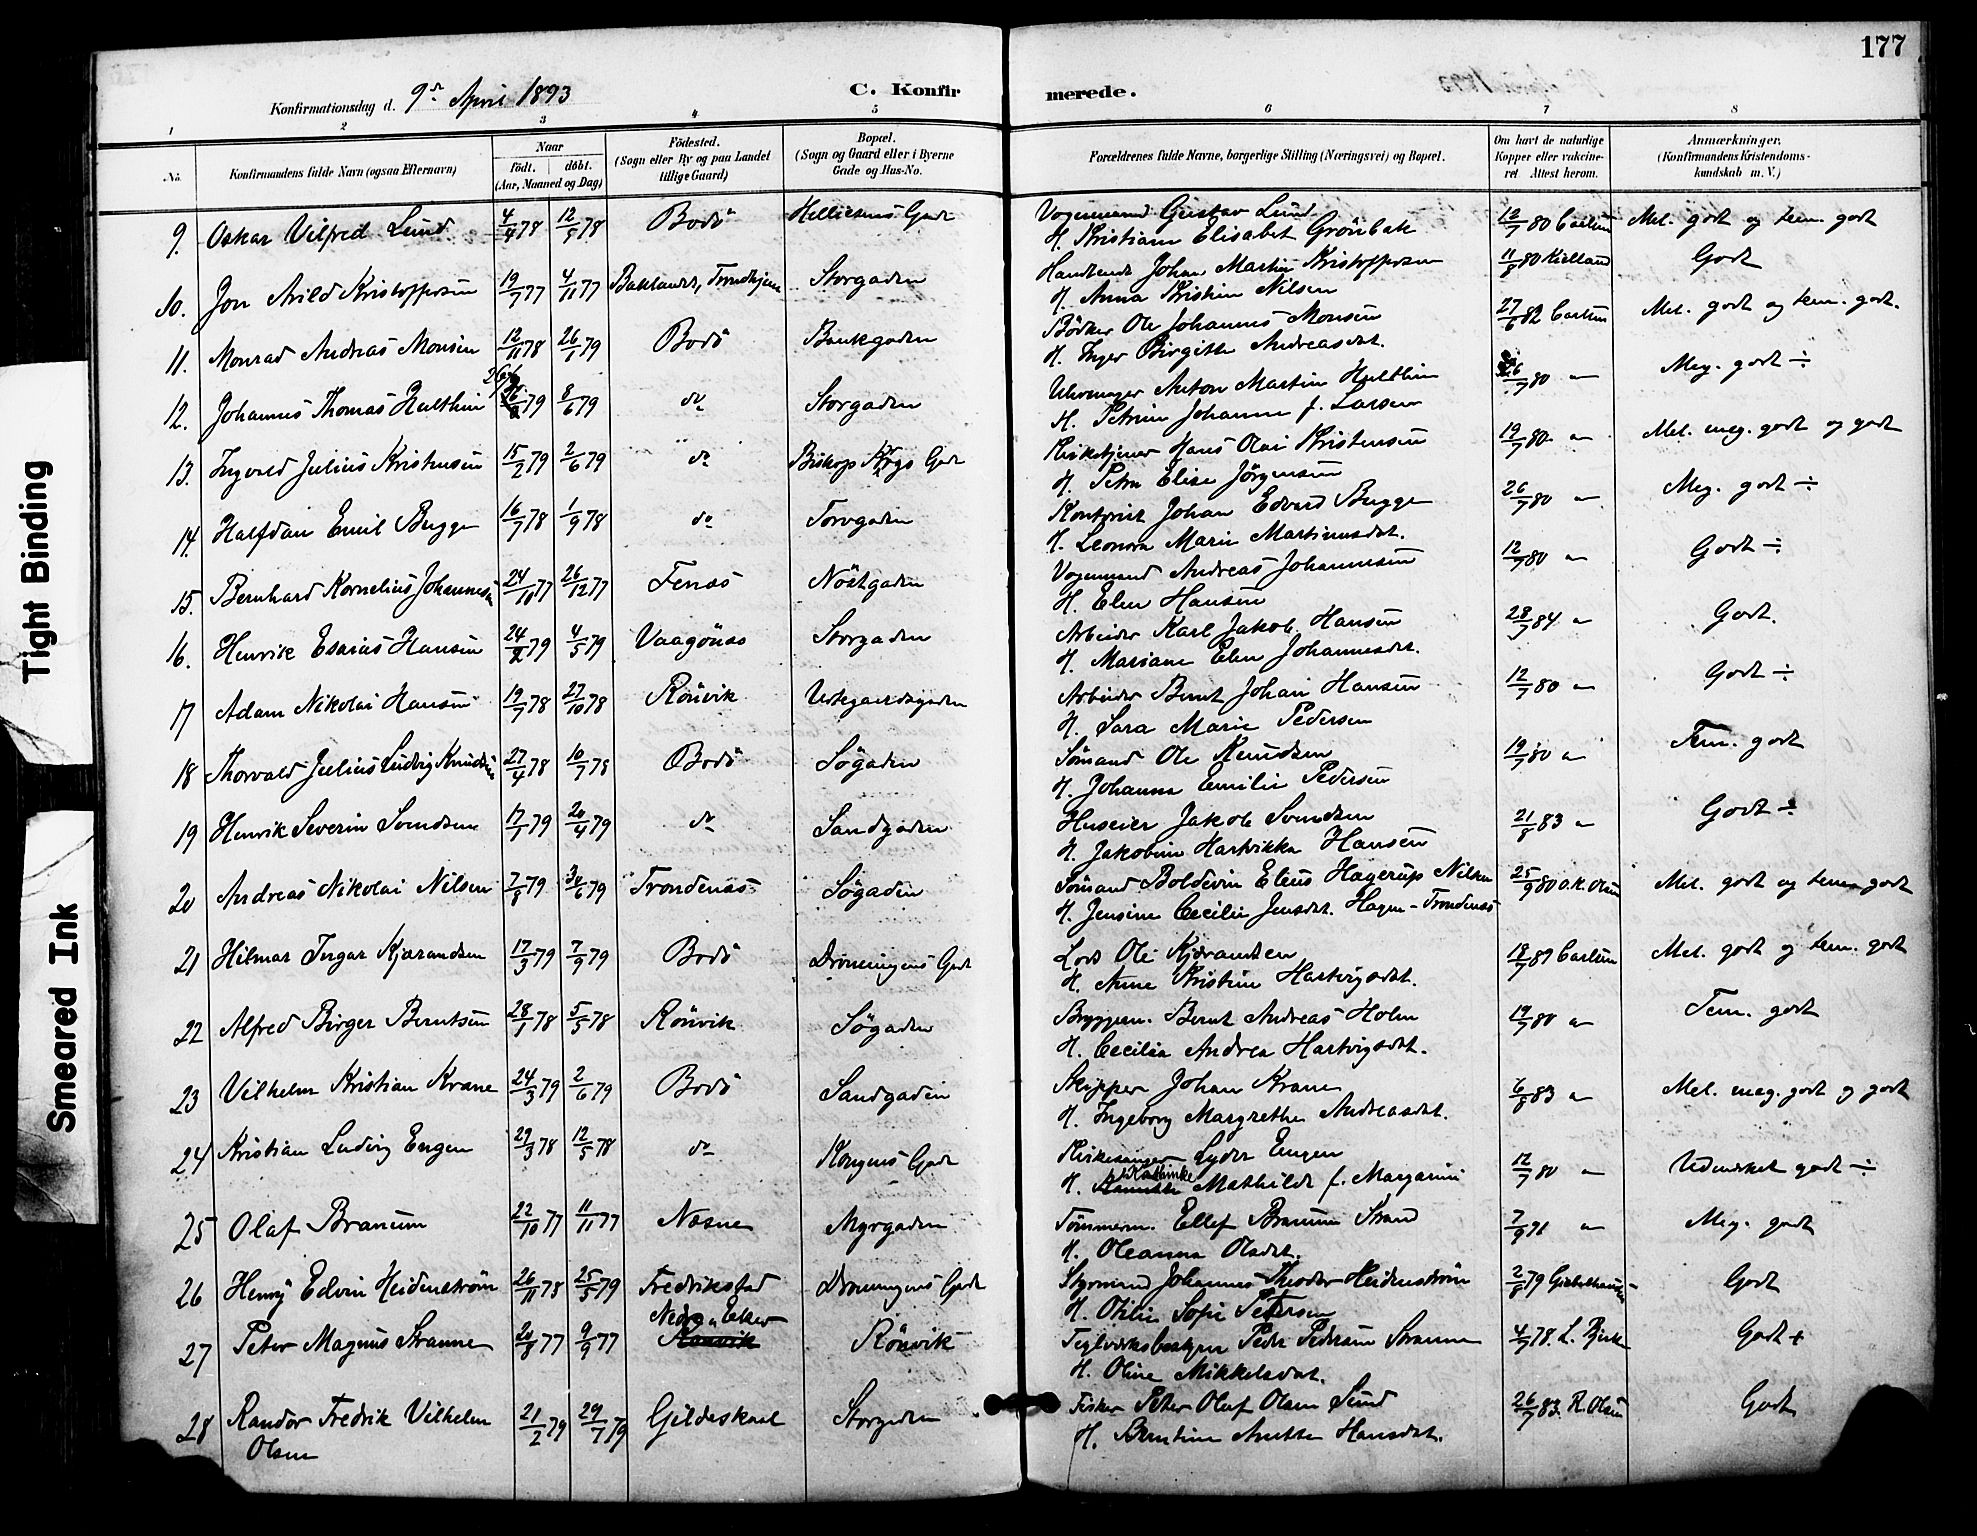 177
Konfirmationsdag d. 9de April 1893
C. Konfirmerede.
1 2 3 4 5 6 7 8
No. Konfirmandens fulde Navn (ogsaa Efternavn) Naar födt. döbt. (Aar, Maaned og Dag) Födested. (Sogn eller By og paa Landet tillige Gaard) Bopæl. (Sogn og Gaard eller i Byerne Gade og Hus-No. Forældrenes fulde Navne, borgerlige Stilling (Næringsvei) og Bopæl. Om havt de naturlige Kopper eller vakcineret. Attest herom. Anmærkninger. (Konfirmandens Kristendomskundskab m. V.)
9. Oskar Vilfred Lund 4/4 78 12/5 78 Bodö Gade Vognmand Gustav Lund 12/7 80 Carlsen Mel. godt og tem. godt
H. Kristiane Elisabet Grönbek
10. Jon Arild Kristoffersen 19/7 77 4/11 77 Baklandet, Trondhjem Storgaden Handlende Johan Martin Kristoffersen 11/8 80 Kielland Godt
H. Anna Kristine Nilsen
11. Monrad Andreas Monsen 12/11 78 26/1 79 Bodö Bankgaden Bödker Ole Johannes Monsen 27/6 82 Carlsen Mel. godt og tem. godt.
H. Inger Birgitte Andreasdat.
12. Johannes Thomas Hulthin 79 8/6 79 do Storgaden Uhrmager Anton Martin Hulthin 26/7 80 " Meg. godt ÷
H. Petrine Johanne f. Larsen
13. Ingvald Julius Kristensen 15/2 79 2/6 79 do Biskop Krogs Gade Kirketjener Hans Olai Kristensen 19/7 80 " Mel. meg. godt og godt
H. Petra Elise Jörgensen
14. Halfdan Emil Bugge 16/7 78 1/9 78 do Torvgaden Kontorist Johan Edvard Bugge 26/7 80 " Meg. godt ÷
H. Leonora Marie Martinusdat.
15. Bernhard Kornelius Johannesen 24/10 77 26/12 77 Fenes Nöstgaden Vognmand Andreas Johannesen 12/7 80 " Godt ÷
H. Elen Hansen
16. Henrik Esaias Hansen 24/2 79 4/5 79 Vaagönes Storgaden Arbeider Karl Jakob Hansen 28/7 84 " Godt.
H. Mariane Elen Johannesdat.
17 Adam Nikolai Hansen 19/7 78 27/10 78 Rönvik Arbeider Bernt Johan Hansen 12/7 80 " Godt ÷
H. Sara Marie Pedersen
18 Thorvald Julius Ludvig Knudsen 27/4 78 10/7 78 Bodö Sögaden Sömand Ole Knudsen 19/7 80 " Tem. godt
H. Johanna Emilie Pedersen
19 Henrik Severin Svendsen 17/1 79 20/4 79 do Sandgaden Huseier Jakob Svendsen 21/8 83 " Godt ÷
H. Jakobine Hartvikka Hansen
20 Andreas Nikolai Nilsen 79 30/6 79 Trondenes Sögaden Sömand Boldevin Eleus Hagerup Nilsen 25/9 80 O.K. Olsen Mel. godt og tem. godt
H. Jensine Cecilie Jensdat. Hagen - Trondenes
21 Hilmar Ingar Kjærandsen 17/3 79 7/9 79 Bodö Dronningens Gade Lods Ole Kjærandsen 18/7 89 Carlsen Mel. godt og tem. godt
H. Anne Kristine Hartvigsdat.
22 Alfred Birger Berntsen 28/1 78 5/5 78 Rönvik Sögaden Bryggem. Bernt Andreas Holm 19/7 80 " Tem. godt
H. Cecilia Andrea Hartvigsdat.
23 Vilhelm Kristian Krane 24/3 79 2/6 79 Bodö Sandgaden Skipper Johan Krane 6/8 83 " Mel. meg. godt og godt
H. Ingeborg Margrethe Andreasdat.
24 Kristian Ludvig Engen 29/3 78 12/5 78 do Kongens Gade Kirkesanger Lyder Engen 12/7 80 " Udmerket godt ÷
H. Kathinke Mathilde f. Margarini
25 Olaf Branum 22/10 77 11/11 77 Nesne Myrgaden Tömmerm. Ellef Branum Strand " Meg. godt
H. Oleanna Olsdat.
26 Henry Edvin Heidenström 26/11 78 25/5 79 Fredrikstad Dronningens Gade Styrmand Johannes Theodor Heidenström 2/8 79 Godt
H. Otilie Sofie Petersen
27 Peter Magnus Stranne 20/8 77 9/9 77 Nedre Eker Rönvik Rönvik Teglværksbestyrer Peder Pedersen Stranne 4/7 78. Godt +
H. Oline Mikkelsdat.
28 Randor Fredrik Vilhelm 21/2 79 29/7 79 Gildeskaal Storgaden Fisker Peter Olaf Olsen Sund 26/7 83. R. Olsen Godt
Olsen H. Berntine Anette Hansdat.
Tight Binding
Smeared Ink